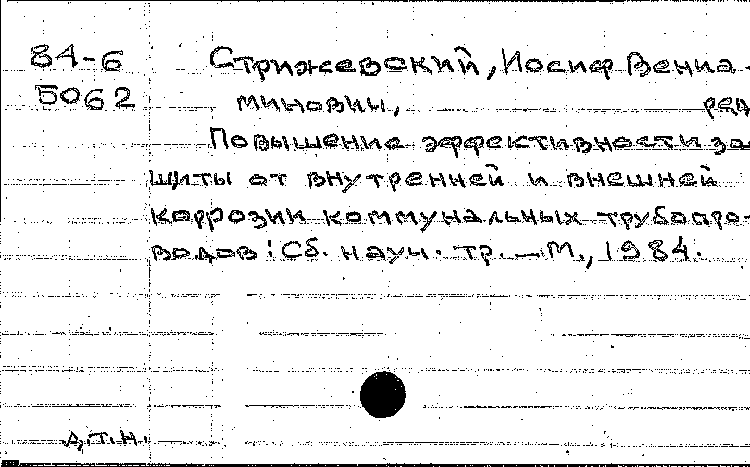 84-6 Стрижевский, Иосиф Вениа-
5062 минович, ред
Повышение эффективности за-
щиты от внутренней и внешней
коррозии коммунальных трубопро-
водов: Сб. науч. тр. — М., 1984.
д.т.н.